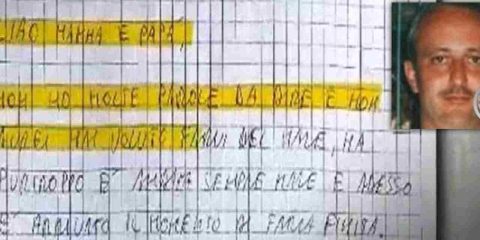 CIAO MAMMA E PAPÀ,
NON HO MOLTE PAROLE DA DIRE E NON
AVREI MAI VOLUTO FARVI DEL MALE, MA
PURTROPPO È ANDATA SEMPRE MALE E ADESSO
È ARRIVATO IL MOMENTO DI FARLA FINITA.